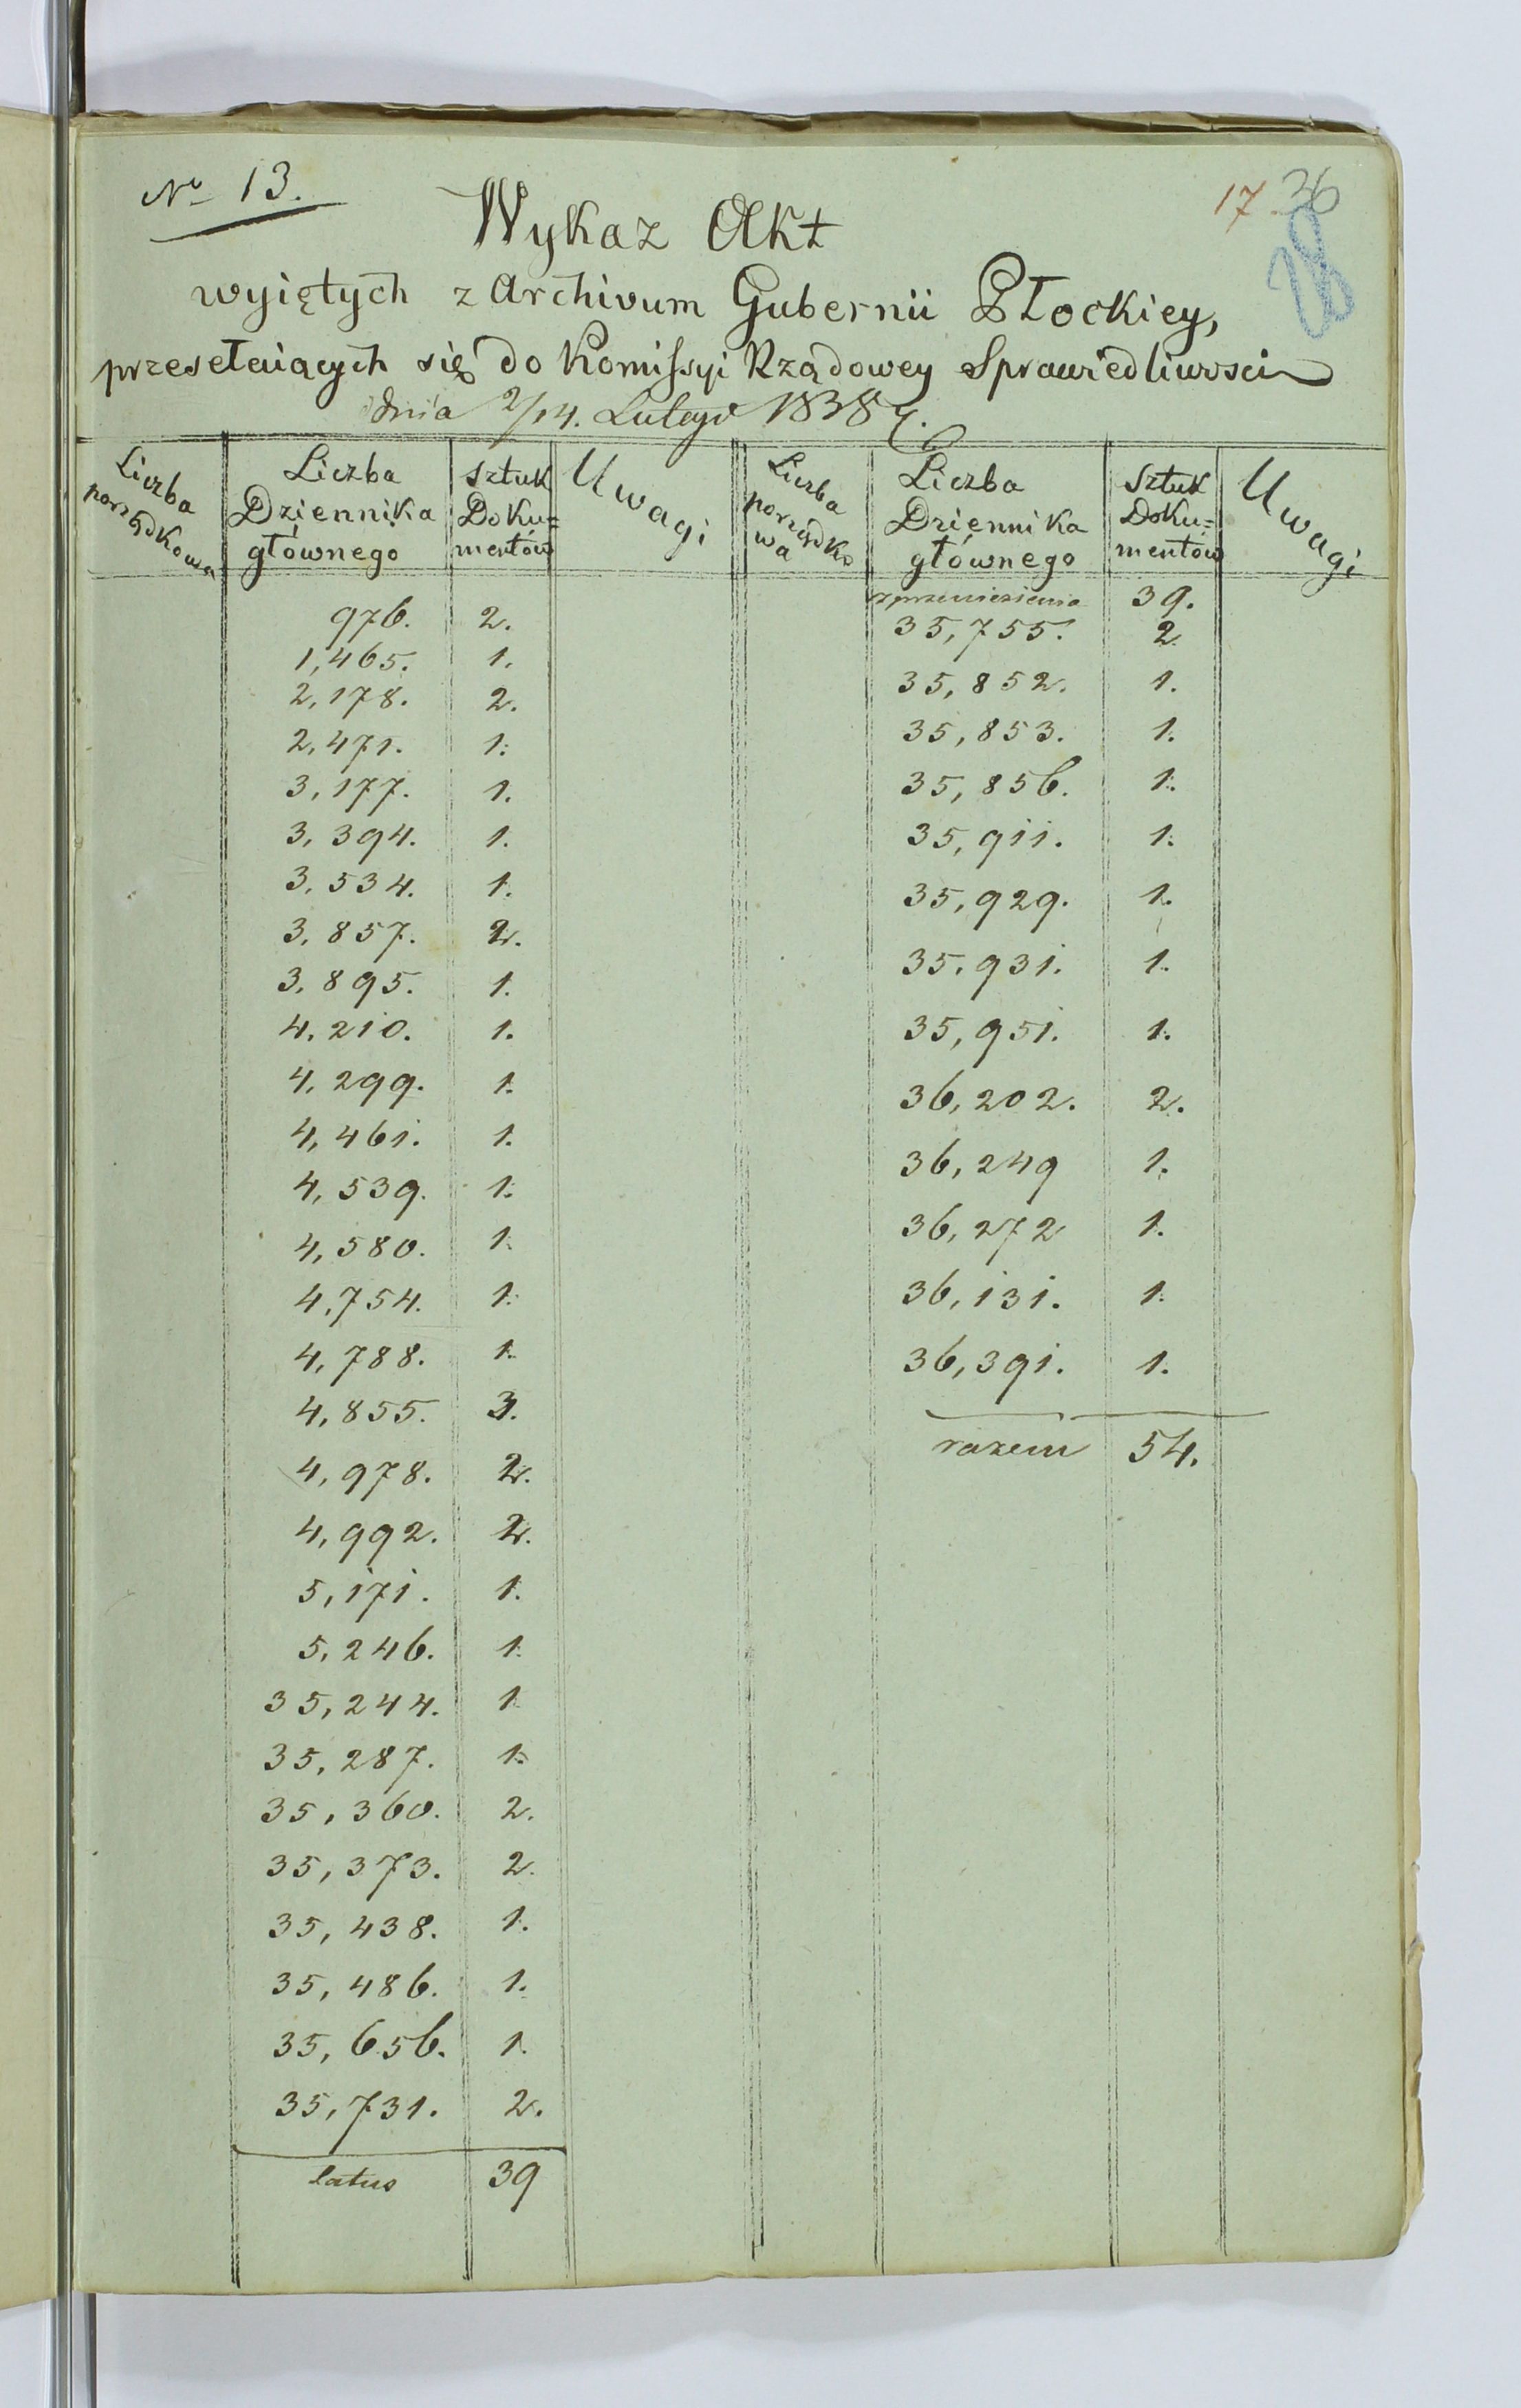 No 13.
17. 36
28
Wykaz Akt
wyiętych z Archivum Gubernii Płockiey,
przesełaiących się do Komissyi Rządowey Sprawiedliwosci
dnia 2/14. Lutego 1838 r.
Liczba porządkowa | Liczba Dziennika głównego | Sztuk Doku=mentów | Uwagi | Liczba porządkowa | Liczba Dziennika głównego | Sztuk Doku=mentów | Uwagi
976. 2.
1,465. 1.
2,178. 2.
2,471. 1.
3,177. 1.
3,394. 1.
3,534. 1.
3,857. 2.
3,895. 1.
4,210. 1.
4,299. 1.
4,461. 1.
4,539. 1.
4,580. 1.
4,754. 1.
4,788. 1.
4,855. 3.
4,978. 2.
4,992. 2.
5,171. 1.
5,246. 1.
35,244. 1.
35,287. 1.
35,360. 2.
35,373. 2.
35,438. 1.
35,486. 1.
35,656. 1.
35,731. 2.
latus 39
z przeniesienia 39.
35,755. 2.
35,852. 1.
35,853. 1.
35,856. 1.
35,911. 1.
35,929. 1.
35,931. 1.
35,951. 1.
36,202. 2.
36,249 1.
36,272 1.
36,131. 1.
36,391. 1.
razem 54.